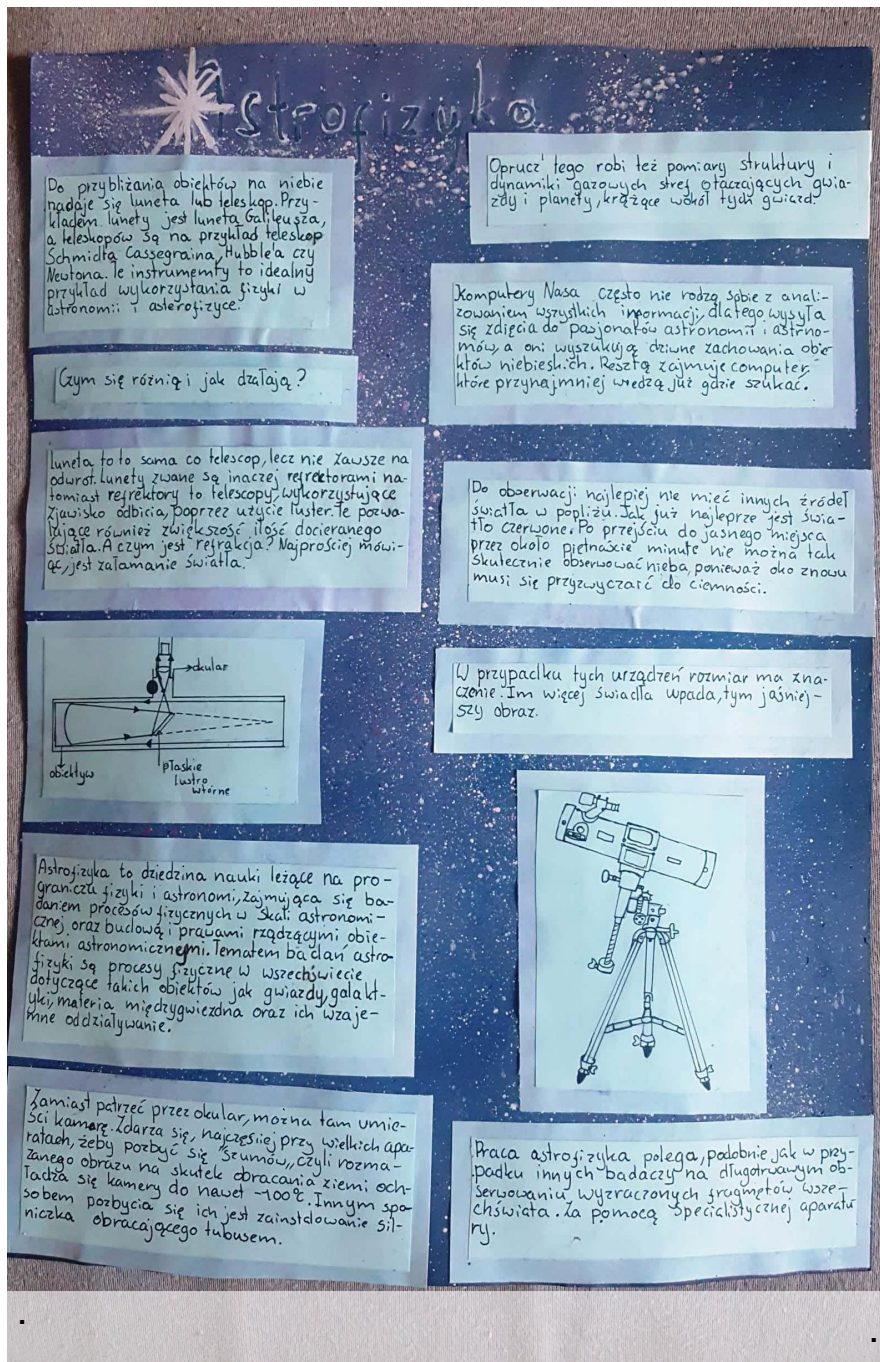 Astrofizyka
Do przybliżania obiektów na niebie
nadaje się luneta lub teleskop. Przy-
kładem lunety jest luneta Galileusza,
a teleskopów są na przykład teleskop
Schmidta Cassegraina, Hubble'a czy
Newtona. Te instrumenty to idealny
przykład wykorzystania fizyki w
astronomii i asterofizyce.
Czym się różnią i jak dzałają?
Luneta to to sama co telescop, lecz nie zawsze na
odwrót. Lunety zwane są inaczej refrektorami na-
tomiast refrektory to telescopy, wykorzystujące
zjawisko odbicia, poprzez użycie luster. Te pozwa-
lające również zwiększość ilość docieranego
światła. A czym jest refrakcja? Najprościej mówi-
ąc, jest załamanie światła.
okular
obiektyw
płaskie
lustro
wtórne
Astrofizyka to dziedzina nauki leżące na pro-
graniczu fizyki i astronomi, zajmująca się ba-
daniem procesów fizycznych w skali astronomi-
cznej oraz budową i prawami rządzącymi obie-
ktami astronomicznemi. Tematem badań astro-
fizyki są procesy fizyczne w wszechświecie
dotyczące takich obiektów jak gwiazdy, galakt-
yki, materia międzygwiezdna oraz ich wzaje-
mne oddziaływanie.
Zamiast patrzeć przez okular, można tam umie-
ści kamerę. Zdarza się, najczęsiiej przy wielkich apa-
ratach, żeby pozbyć się "szumów,, czyli rozma-
zanego obrazu na skutek obracania ziemi och-
ładza się kamery do nawet -100°C. Innym spo-
sobem pozbycia się ich jest zainstalowanie sil-
niczka obracającego tubusem.
Oprucz tego robi też pomiary struktury i
dynamiki gazowych stref otaczających gwia-
zdy i planety, krążące wokół tych gwiazd.
Komputery Nasa często nie rodzą sobie z anali-
zowaniem wszystkich informacji, dlatego wysyła
się zdięcia do pasjonatów astronomii i astrno-
mów, a oni wyszukują dziwne zachowania obie-
któw niebieskich. Resztą zajmuje computer,
które przynajmniej wiedzą już gdzie szukać.
Do obserwacji najlepiej nie mieć innych źródeł
światła w popliżu. Jak już najleprze jest świa-
tło czerwone. Po przejściu do jasnego miejsca
przez około piętnaście minute nie można tak
skutecznie obserwować nieba, ponieważ oko znowu
musi się przyzwyczaić do ciemności.
W przypadku tych urządzeń rozmiar ma zna-
czenie. Im więcej świadła wpada, tym jaśniej-
szy obraz.
Praca astrofizyka polega, podobnie jak w przy-
padku innych badaczy na długotrwawym ob-
serwowaniu wyzraczonych fragmętów wsze-
chświata. Za pomocą specialistycznej aparatu
ry.